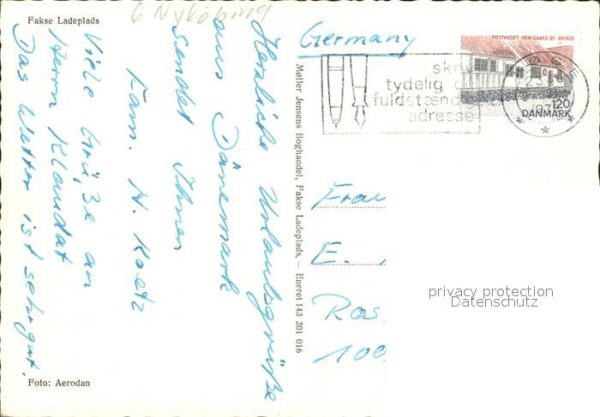 Fakse Ladeplads
Herzliche Urlaubsgrüße
aus Dänemark
sendet Ihnen
Fam. H. Koetz
Viele Grüße an
Herrn Klaudat
Das Wetter ist sehr gut.
Foto: Aerodan
Møller Jensens Boghandel, Fakse Ladeplads. - Eneret 143 201 016
Germany
skriv
tydelig og
fuldstændig
adresse
POSTHUSET · DEN GAMLE BY · ÅRHUS
120
DANMARK
Frau
E.
Ros
100
privacy protection
Datenschutz